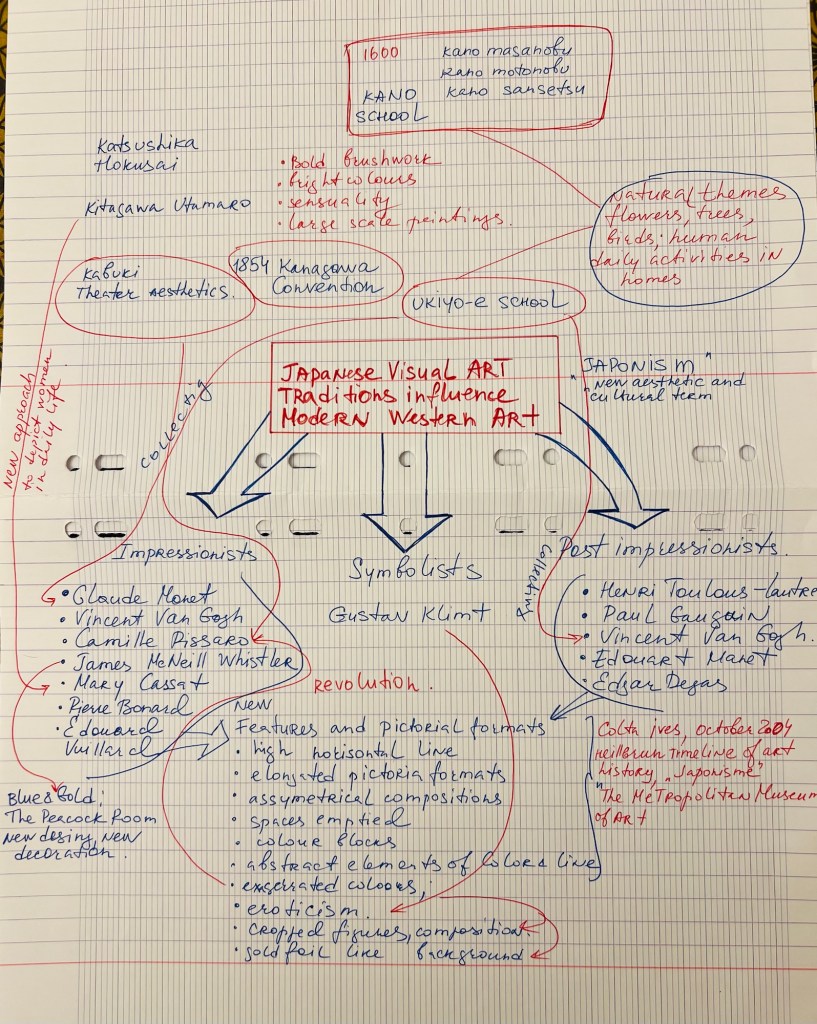 1600 Kano masanobu
Kano motonobu
KANO Kano sansetsu
SCHOOL
Katsushika
Hokusai
Kitagawa Utamaro
• Bold brushwork
• bright colours
• sensuality
• large scale peintings.
Natural themes
flowers, trees,
birds; human
daily activities in
homes
Kabuki
Theater Aesthetics.
1854 Kanagawa
Convention
UKIYO-E SCHOOL
JAPANESE Visual ART
TRaditions influence
MODERN WESTERN ART
"JAPONISM"
"new aesthetic and
cultural term"
New approach
to depict women
in daily life
collecting
Impressionists
• Claude Monet
• Vincent Van Gogh
• Camille Pissaro
• James McNeill Whistler
• Mary Cassat
• Pierre Bonard
• Edouard
Vuillard
Symbolists
Gustav Klimt
collecting
Post impressionists.
• Henri Toulous-lautre
• Paul Gauguin
• Vincent Van Gogh.
• Edouart Manet
• Edgar Degas
REVOLUTION.
New
Features and pictorial formats
• high horisontal line
• elongated pictoria formats
• assymetrical compositions
• spaces emptied
• colour blocks
• abstract elements of Color & line
• exgerrated coloors,
• eroticism.
• cropped figures, composition
• gold foil line background
Blue & Gold:
The Peacock Room
new desing, new
decoration.
Colta ives, October 2004
Heilbrun Timeline of art
history, „Japonisme"
"The Metropolitan Museum
of ART